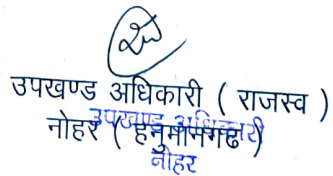 उपखण्ड अधिकारी ( राजस्व )
नोहर ( हनुमानगढ )
उपखण्ड अधिकारी
नोहर